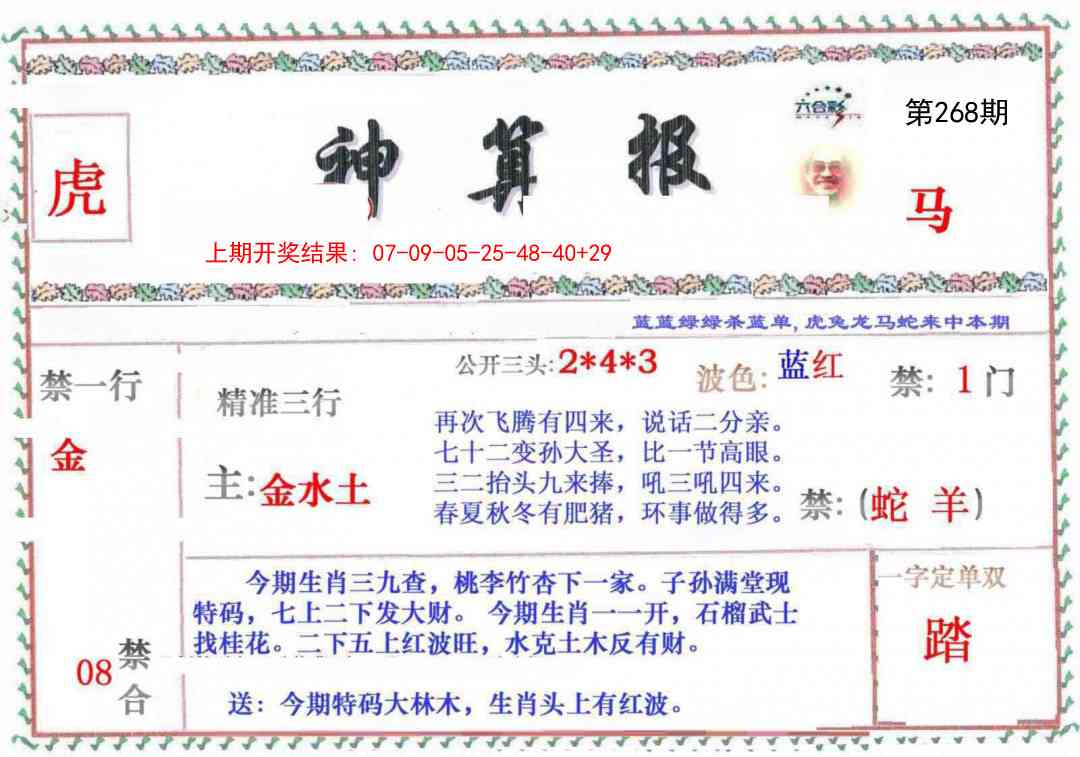 六合彩
第268期
虎
神算报
马
上期开奖结果：07-09-05-25-48-40+29
蓝蓝绿绿杀蓝单,虎兔龙马蛇来中本期
禁一行
金
精准三行
主:金水土
公开三头:2*4*3
波色:蓝红
禁:1门
再次飞腾有四来，说话二分亲。
七十二变孙大圣，比一节高眼。
三二抬头九来捧，吼三吼四来。
春夏秋冬有肥猪，环事做得多。
禁:(蛇 羊)
今期生肖三九查，桃李竹杏下一家。子孙满堂现
特码，七上二下发大财。 今期生肖一一开，石榴武士
找桂花。二下五上红波旺，水克土木反有财。
送：今期特码大林木，生肖头上有红波。
08
禁合
一字定单双
踏